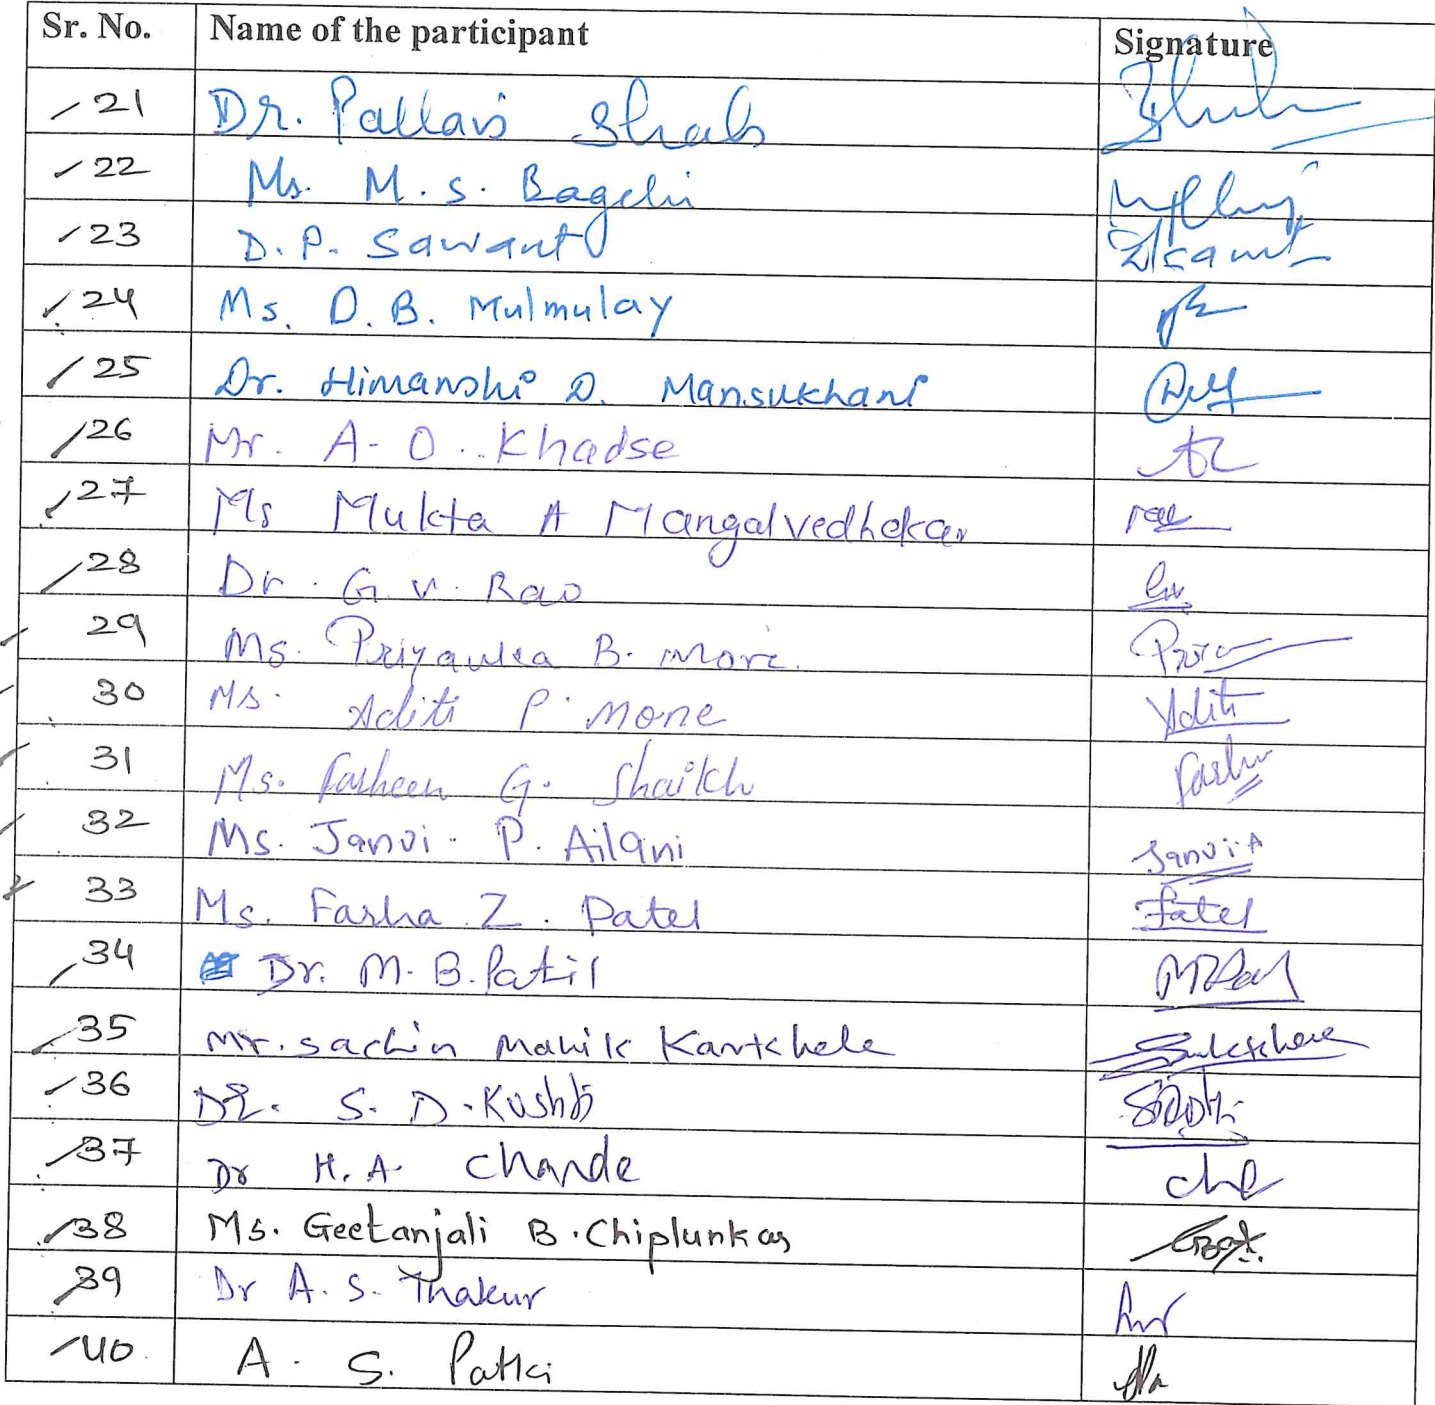 Sr. No. Name of the participant Signature
21 Dr. Pallavi Shah
22 Ms. M. S. Bagchi
23 D. P. Sawant
24 Ms. D. B. Mulmulay
25 Dr. Himanshi D. Mansukhani
26 Mr. A. O. Khadse
27 Ms Mukta A Mangalvedhekar
28 Dr. G. V. Rao
29 Ms. Priyanka B. More.
30 Ms. Aditi P. Mone Aditi
31 Ms. Farheen G. Shaikh
32 Ms. Janvi. P. Ailani Janvi.A
33 Ms. Farha Z. Patel Fatel
34 Dr. M. B. Patil
35 Mr. Sachin Manik Kartkhele
36 Dr. S. D. Kushti
37 Dr H. A. Chande
38 Ms. Geetanjali B. Chiplunkar
39 Dr A. S. Thakur
40 A. S. Patki